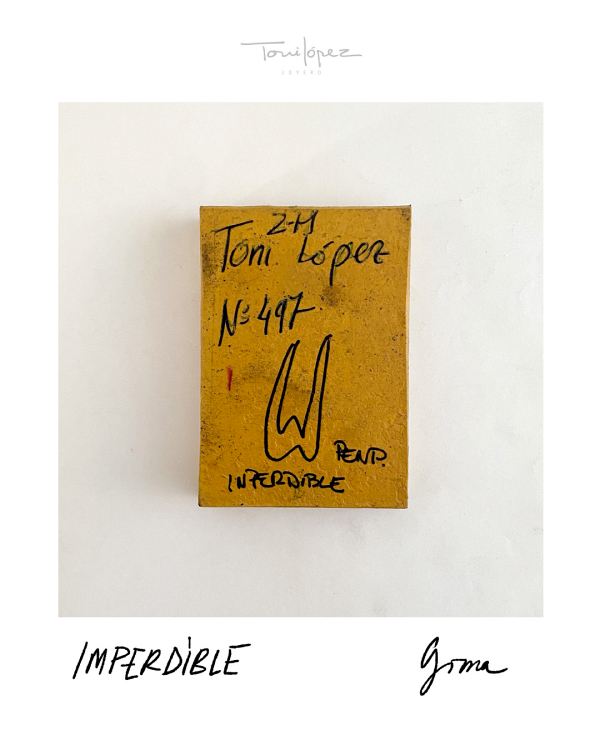 Toni López
JOYERO
2-M
Toni López
Nº 497
PEND.
IMPERDIBLE
IMPERDIBLE
Goma